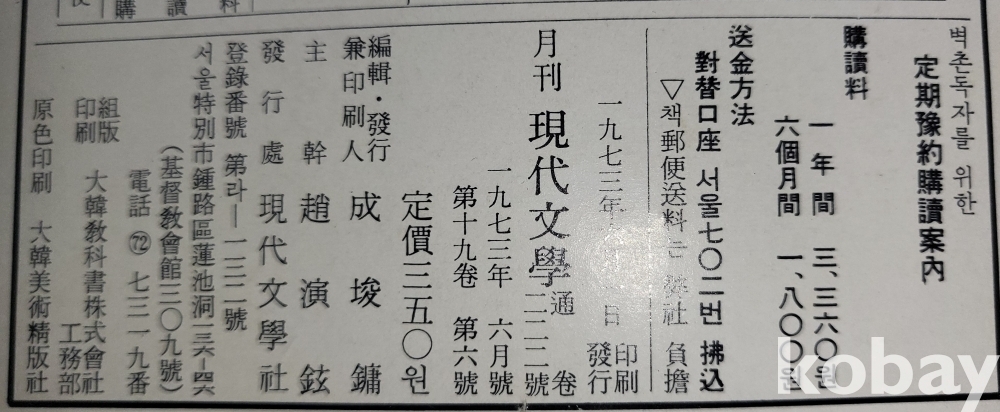 벽촌독자를 위한
定期豫約購讀案內
購讀料
一年間 三、三六〇원
六個月間 一、八〇〇원
送金方法
對替口座 서울七〇二번 拂込
▽책郵便送料는 社 負擔
一九七三年 日 印刷 發行
月刊 現代文學 通卷 二二二號
一九七三年 六月號
第十九卷 第六號
定價三五〇원
編輯・發行
兼印刷人 成埈鏞
主幹 趙演鉉
發行處 現代文學社
登錄番號 第라—一三二號
서울特別市鍾路區蓮池洞一三六—四六
(基督敎會館三〇九號)
電話 ㊆ 七三一九番
組版
印刷 大韓敎科書株式會社
工務部
原色印刷 大韓美術精版社
購讀料
kobay